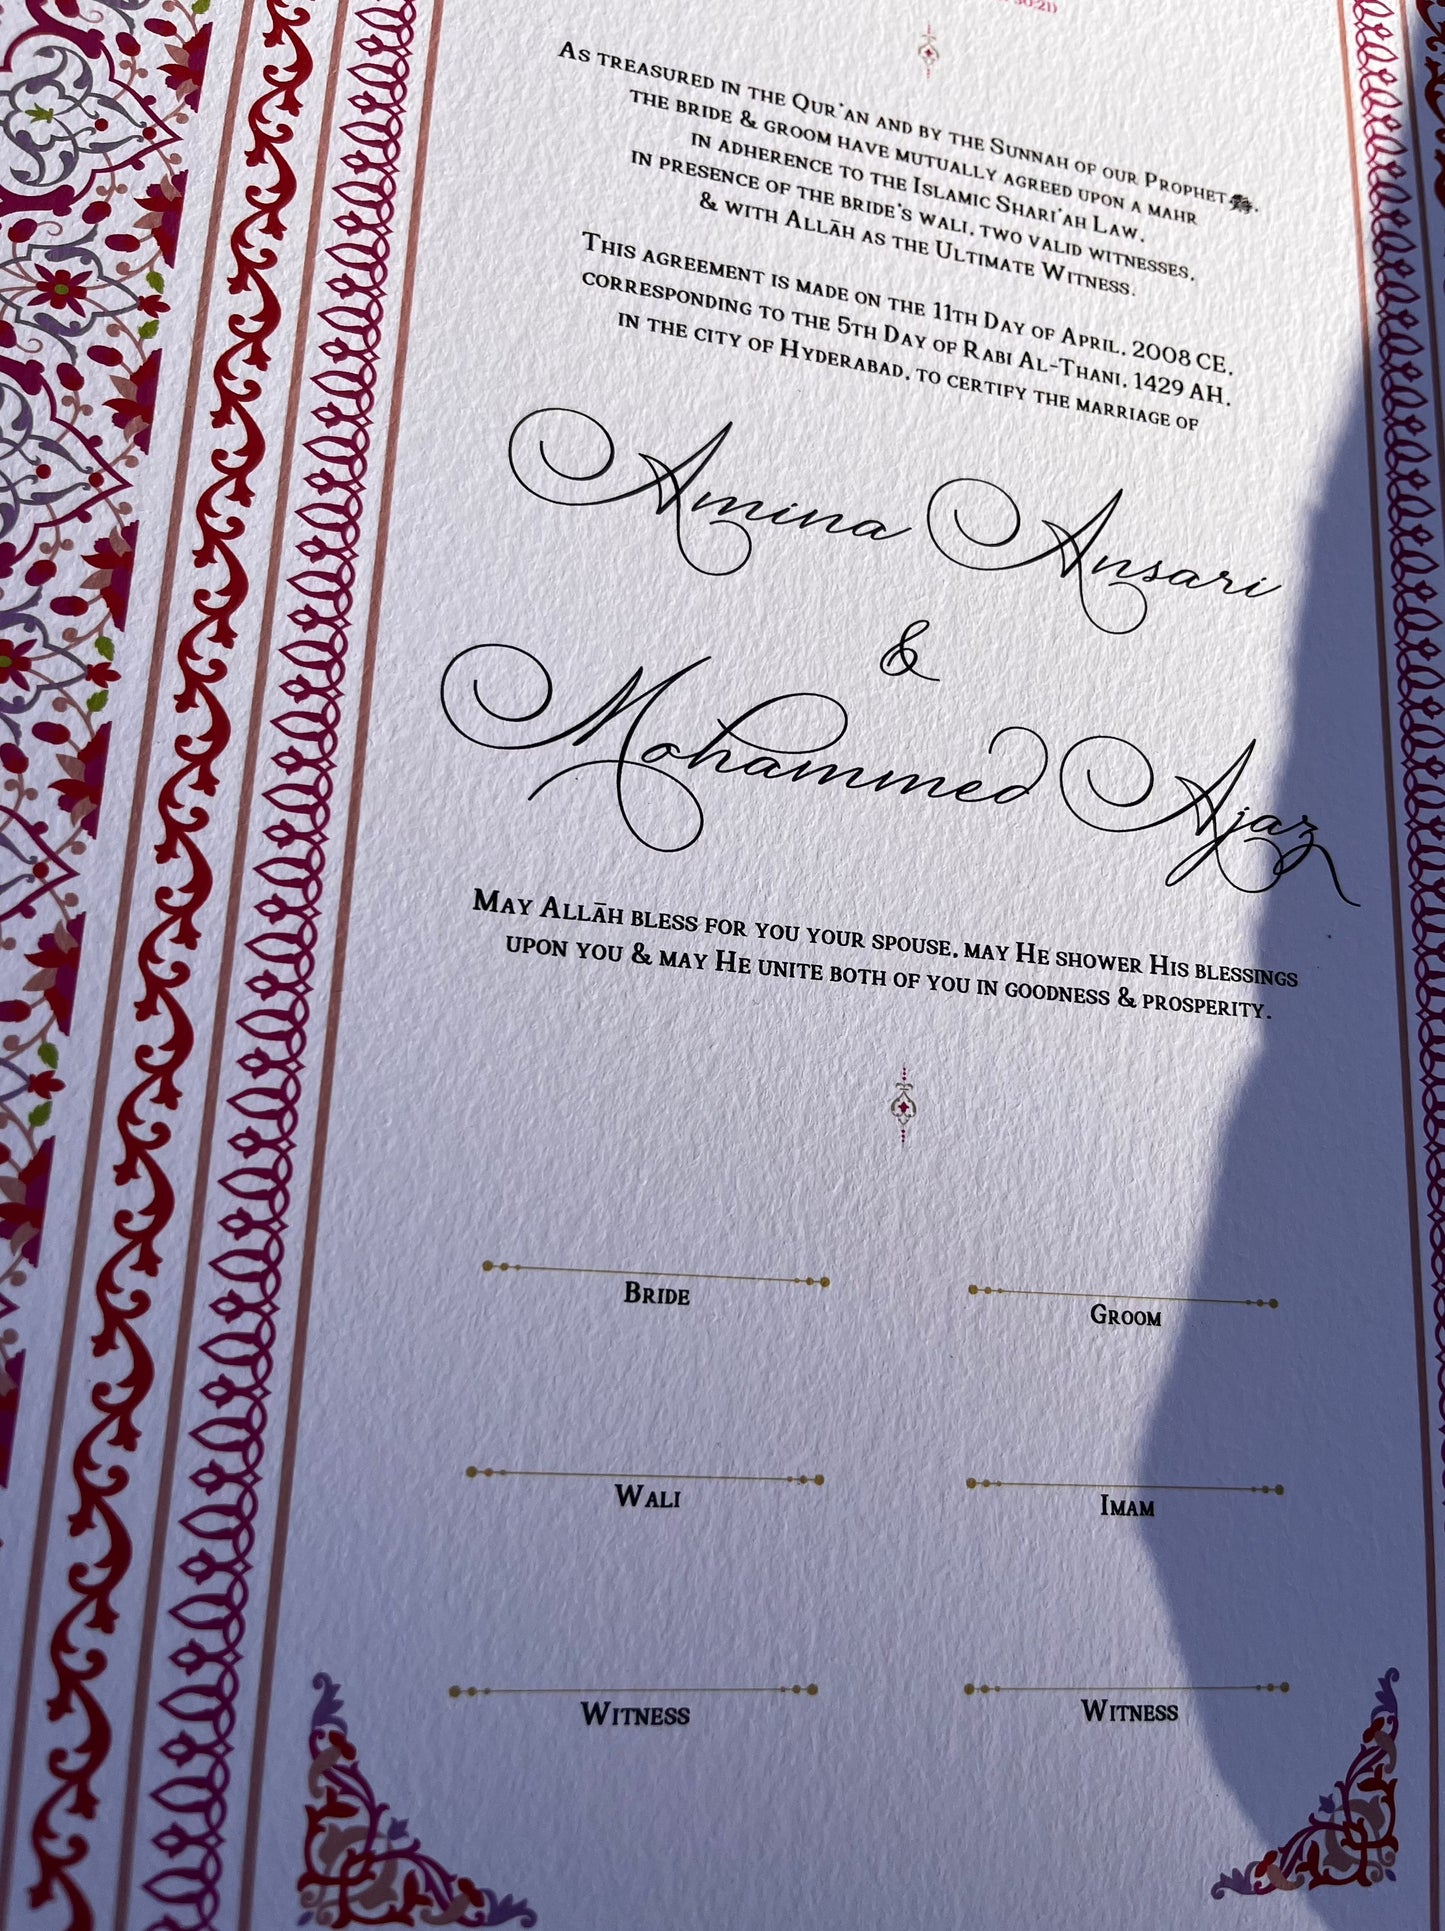 30:21)
As treasured in the Qur'an and by the Sunnah of our Prophet ﷺ.
the bride & groom have mutually agreed upon a mahr
in adherence to the Islamic Shari'ah Law,
in presence of the bride's wali, two valid witnesses,
& with Allāh as the Ultimate Witness.
This agreement is made on the 11th Day of April, 2008 CE,
corresponding to the 5th Day of Rabi Al-Thani, 1429 AH,
in the city of Hyderabad, to certify the marriage of
Amina Ansari
&
Mohammed Ajaz
May Allāh bless for you your spouse, may He shower His blessings
upon you & may He unite both of you in goodness & prosperity.
Bride
Groom
Wali
Imam
Witness
Witness